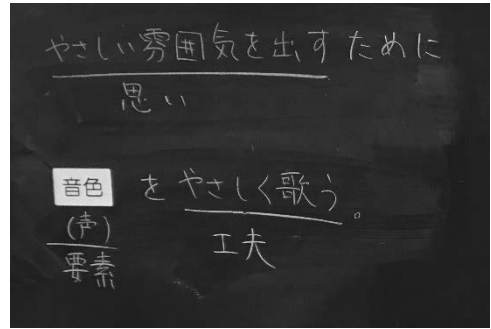 やさしい雰囲気を出すために
思い
音色 を やさしく歌う。
(声)
工夫
要素